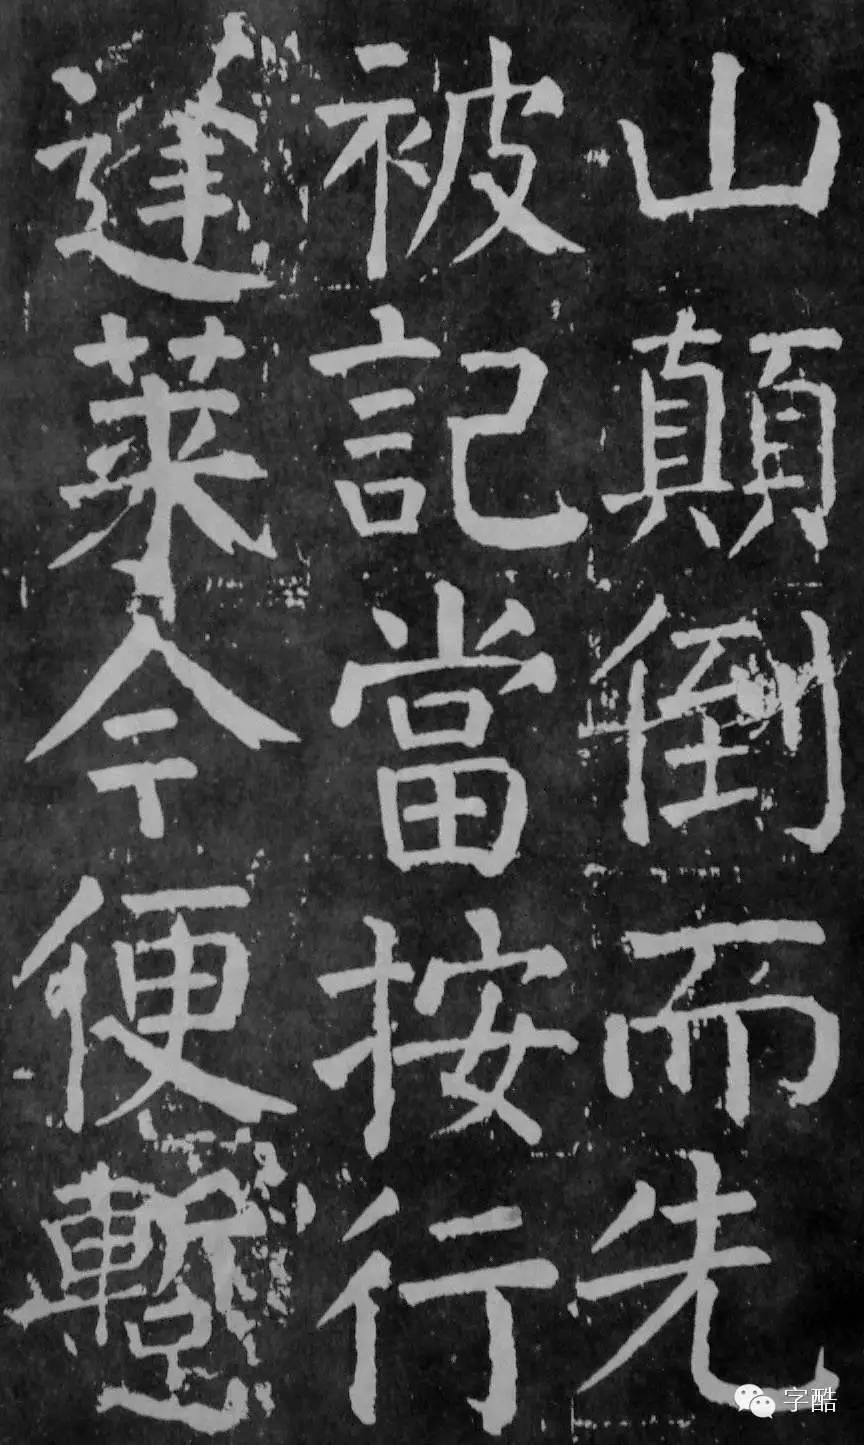 山顛倒而先
被記當按行
逢萊今便蹔
字酷